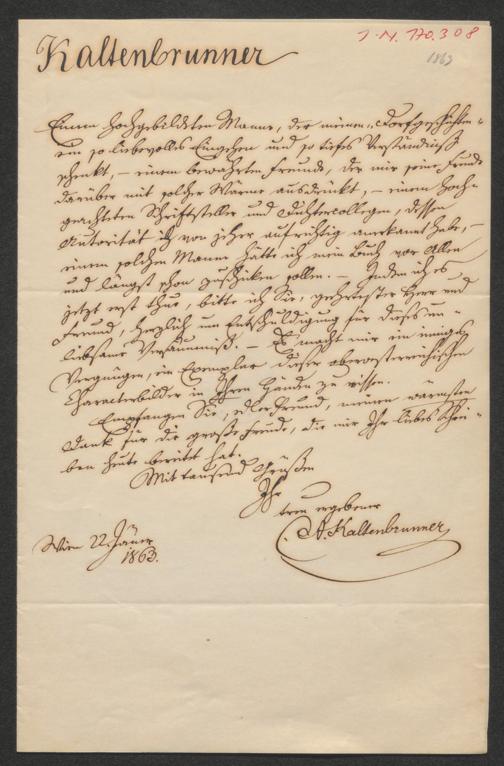 Kaltenbrunner
J.N. 170.308
1863
Einem hochgebildeten Manne, der meinen „Dorfgeschichten“
ein so liebevolles Eingehen und so tiefes Verständniß
schenkt, – einem bewährten Freunde, der mir seine Freude
darüber mit solcher Wärme ausdrückt, – einem hoch-
geachteten Schriftsteller und Dichtercollegen, dessen
Autorität ich von jeher aufrichtig anerkannt habe, –
einem solchen Manne hätte ich mein Buch vor Allen
und längst schon zuschicken sollen. – Indem ich es
jetzt erst thue, bitte ich Sie, geehrtester Herr und
Freund, herzlich um Entschuldigung für dieses un-
liebsame Versäumniß. – Es macht mir ein inniges
Vergnügen, ein Exemplar dieser oberösterreichischen
Characterbilder in Ihren Händen zu wissen.
Empfangen Sie, edler Freund, meinen wärmsten
Dank für die große Freude, die mir Ihr liebes Schrei-
ben heute bereitet hat.
Mit tausend Grüßen
Ihr
treu ergebener
A. Kaltenbrunner
Wien 22. Jäner
1863.